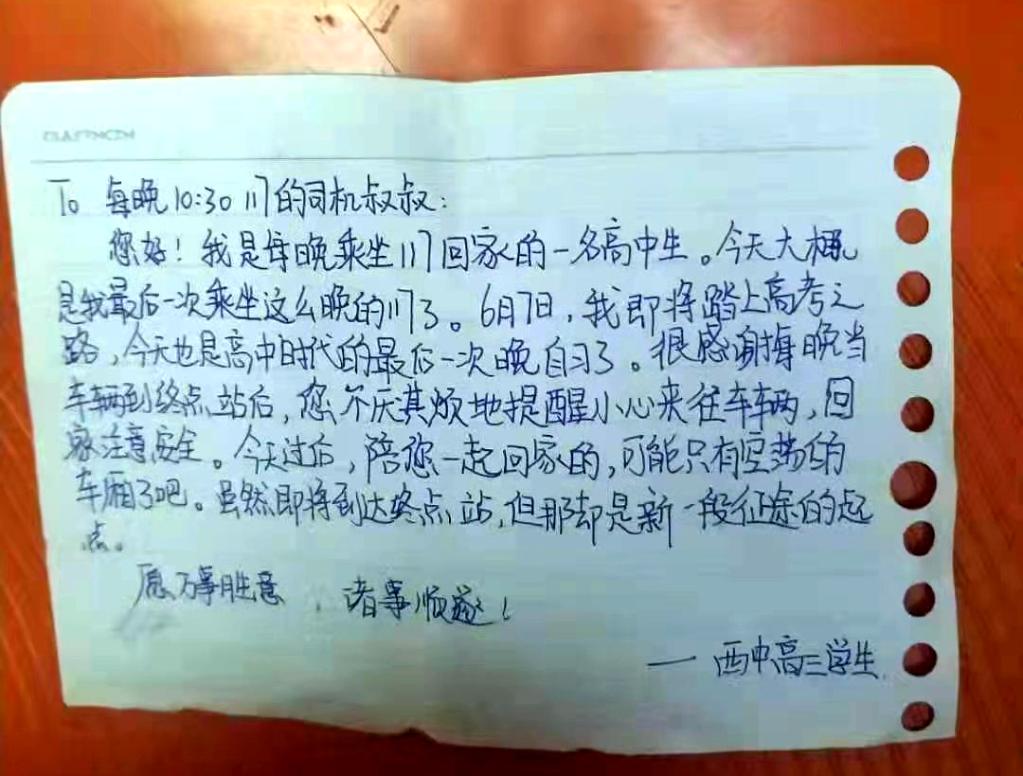 To 每晚10:30 117的司机叔叔:
您好！我是每晚乘坐117回家的一名高中生。今天大概
是我最后一次乘坐这么晚的117了。6月7日，我即将踏上高考之
路，今天也是高中时代的最后一次晚自习了。很感谢每晚当
车辆到终点站后，您不厌其烦地提醒小心来往车辆，回
家注意安全。今天过后，陪您一起回家的，可能只有空荡的
车厢了吧。虽然即将到达终点站，但那却是新一段征途的起
点。
愿万事胜意，诸事顺遂！
——西中高三学生